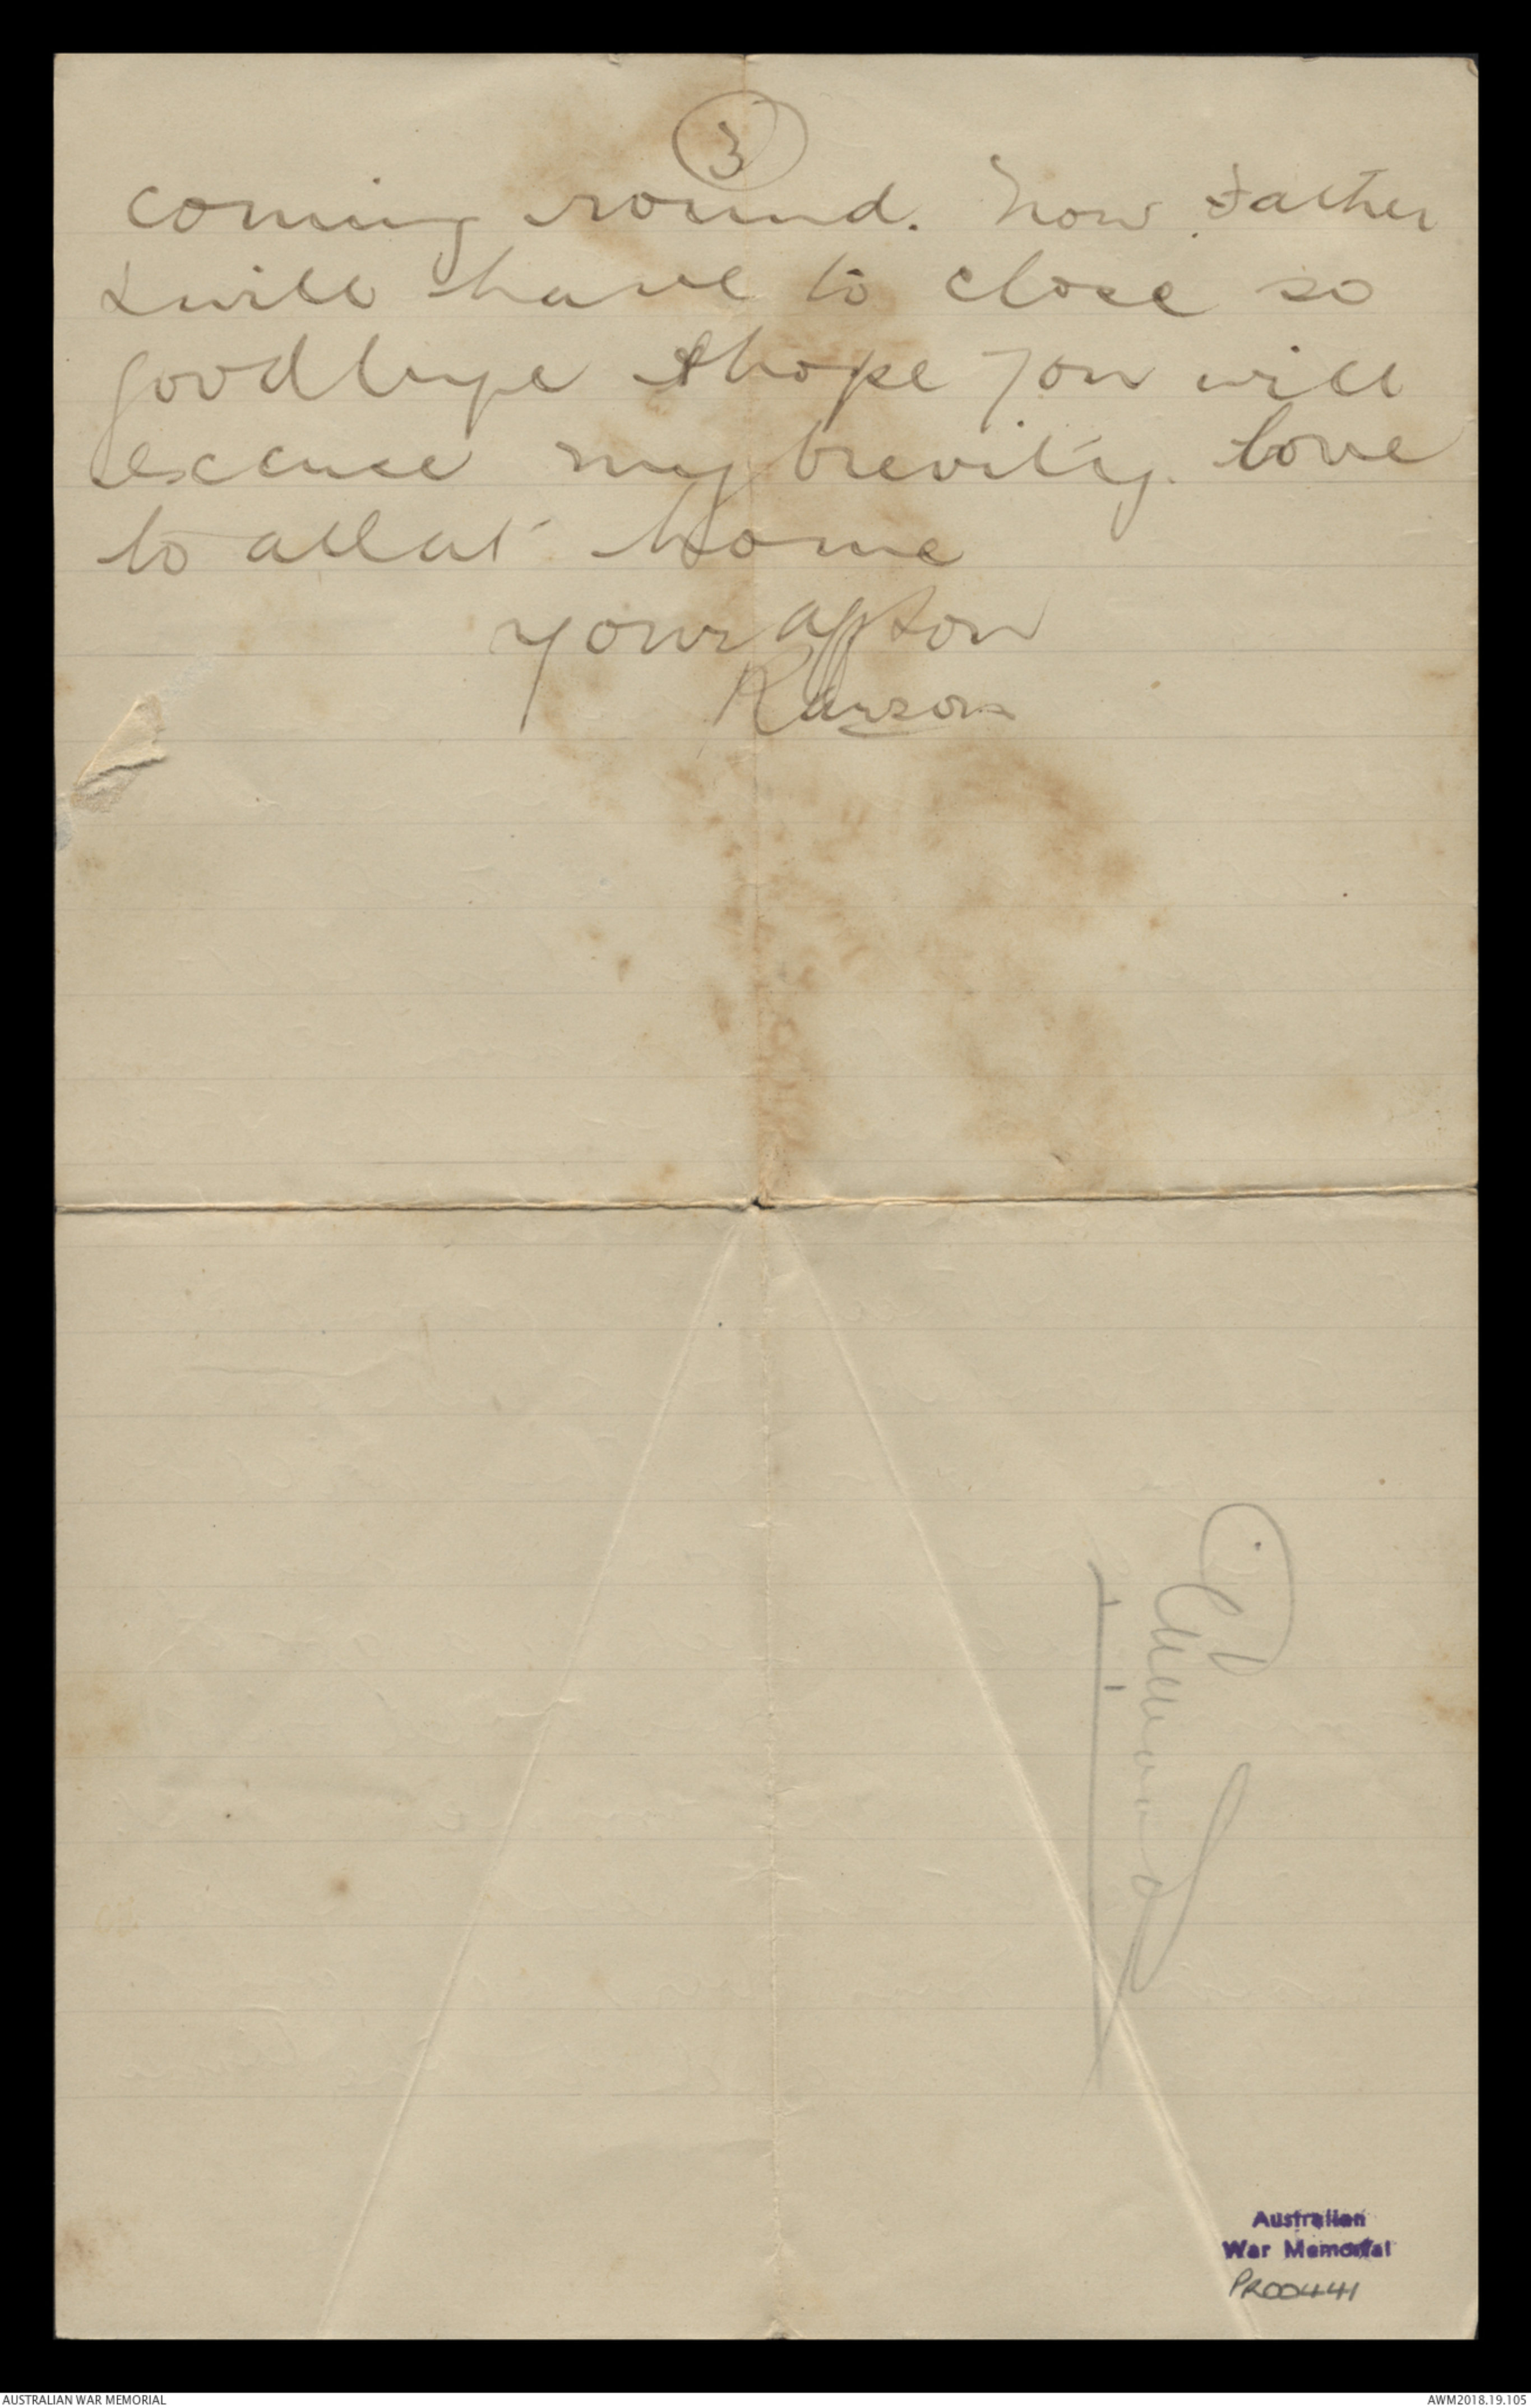 3
coming round. Now Father
I will have to close so
goodbye I hope you will
excuse my brevity. Love
to all at home
your aff son
Australian
War Memorial
PR00441
AUSTRALIAN WAR MEMORIAL
AWM2018.19.105